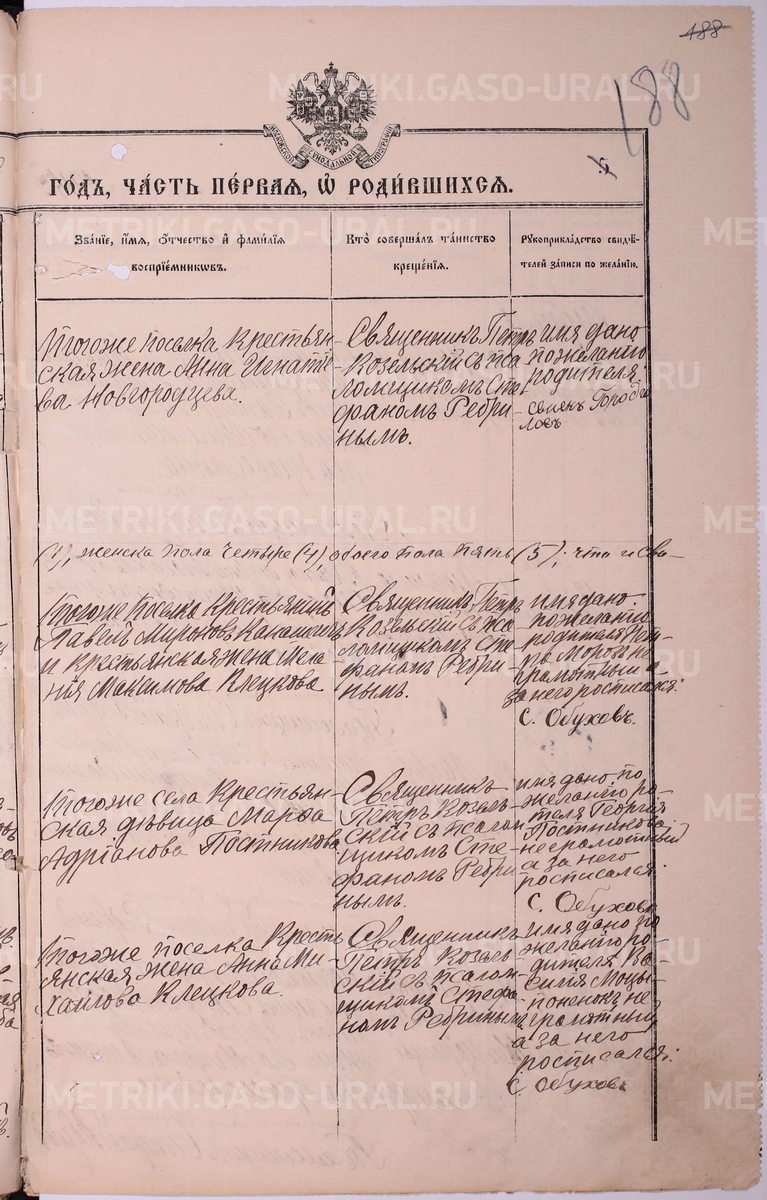 188
188
МОСКОВСКОЙ СѴНОДАЛЬНОЙ ТИПОГРАФІИ
ГО́ДЪ, ЧА́СТЬ ПЕ́РВАЯ, Ѡ҆ РОДИ́ВШИХСЯ.
Зва́ніе, и҆́мя, ѻ҆́тчество и҆ фами́лія
воспріе́мникѡвъ.
Кто̀ соверша́лъ та́инство
креще́нія.
Рукоприкла́дство свидѣ́-
телей за́писи по жела́нію.
Тогоже поселка крестьян-
ская жена Анна Игнатіе
ва Новгородцева.
Священникъ Петръ
Козельскій съ пса
ломщикомъ Сте
фаномъ Ребри-
нымъ.
имя дано
по желанію
родителя:
(4), женска пола четыре (4), обоего пола пять (5); что и сви-
Тогоже поселка крестьянинъ
Павелъ Мироновъ
и крестьянская жена Мела
нія Максимова Клецкова
Священникъ Петръ
Козельскій съ пса
ломщикомъ Сте
фаномъ Ребри-
нымъ.
имя дано
по желанію
родителя
не
грамотный а
за него росписался:
С. Обуховъ.
Тогоже села крестьян
ская дѣвица Марѳа
Адріанова Постникова
Священникъ
Петръ Козель-
скій съ псалом
щикомъ Сте-
фаномъ Ребри
нымъ.
имя дано по
желанію ро-
теля Георгия
Постникова
неграмотный
а за него
росписался:
С. Обуховъ
Тогоже поселка кресть
янская жена Анна Ми-
хайлова Клецкова.
Священникъ
Петръ Козель
скій съ псалом
щикомъ Стефа
номъ Ребринымъ
имя дано по
желанію ро-
дителя Ва
силия
не
грамотный
а за него
росписался:
С. Обуховъ
METRIKI.GASO-URAL.RU